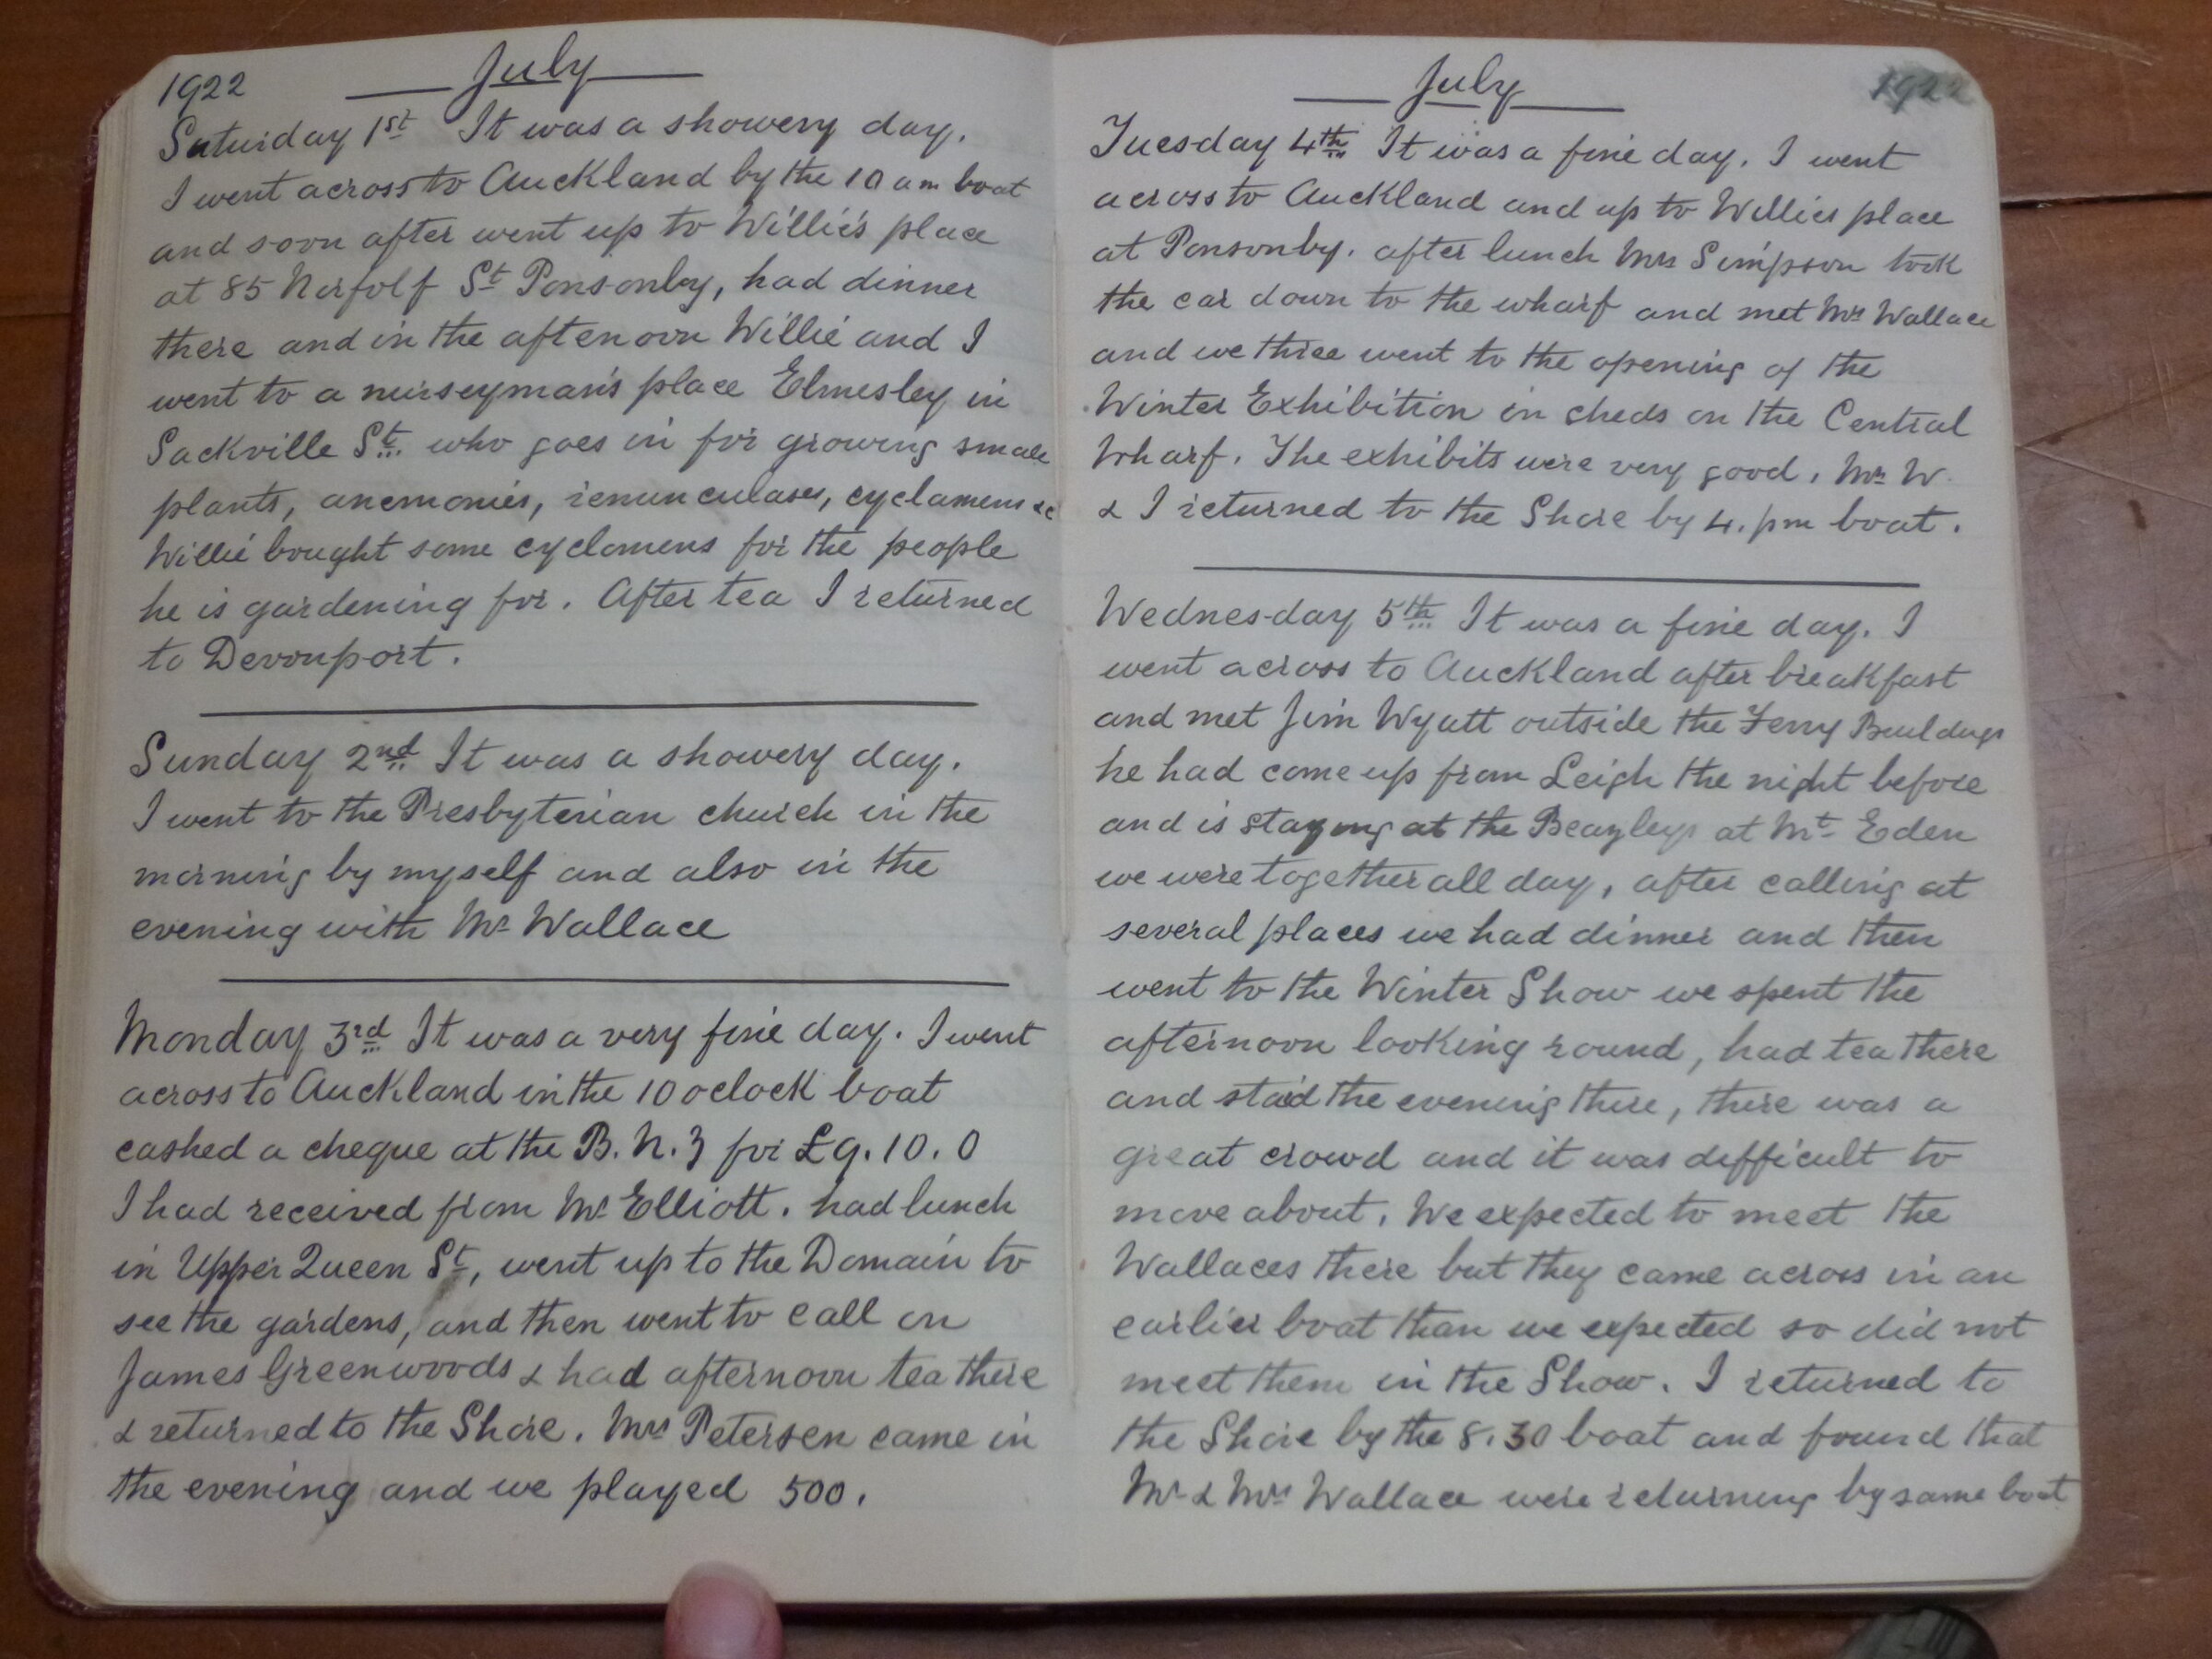 1922
July
Saturday 1st It was a showery day.
I went across to Auckland by the 10 am boat
and soon after went up to Willie's place
at 85 Norfolf St Ponsonby, had dinner
there and in the afternoon Willie and I
went to a nurseyman's place Elmesley in
Sackville St. who goes in for growing small
plants, anemonies, renunculases, cyclamens &c
Willie bought some cyclamens for the people
he is gardening for. After tea I returned
to Devonport.
Sunday 2nd It was a showery day.
I went to the Presbyterian church in the
morning by myself and also in the
evening with Mr Wallace
Monday 3rd It was a very fine day. I went
across to Auckland in the 10 oclock boat
cashed a cheque at the B.N.Z for £9.10.0
I had received from Mr Elliott. had lunch
in Upper Queen St, went up to the Domain to
see the gardens, and then went to call on
James Greenwoods & had afternoon tea there
& returned to the Shore. Mrs Petersen came in
the evening and we played 500.
July
1922
Tuesday 4th It was a fine day. I went
across to Auckland and up to Willies place
at Ponsonby. after lunch Mrs Simpson took
the car down to the wharf and met Mrs Wallace
and we three went to the opening of the
Winter Exhibition in cheds on the Central
Wharf. The exhibits were very good. Mrs W.
& I returned to the Shore by 4.pm boat.
Wednesday 5th It was a fine day. I
went across to Auckland after breakfast
and met Jim Wyatt outside the Ferry Buildings
he had come up from Leigh the night before
and is staying at the Beazleys at Mt Eden
we were together all day, after calling at
several places we had dinner and then
went to the Winter Show we spent the
afternoon looking round, had tea there
and staid the evening there, there was a
great crowd and it was difficult to
move about. We expected to meet the
Wallaces there but they came across in an
earlier boat than we expected so did not
meet them in the Show. I returned to
the Shore by the 8.30 boat and found that
Mr & Mrs Wallace were returning by same boat